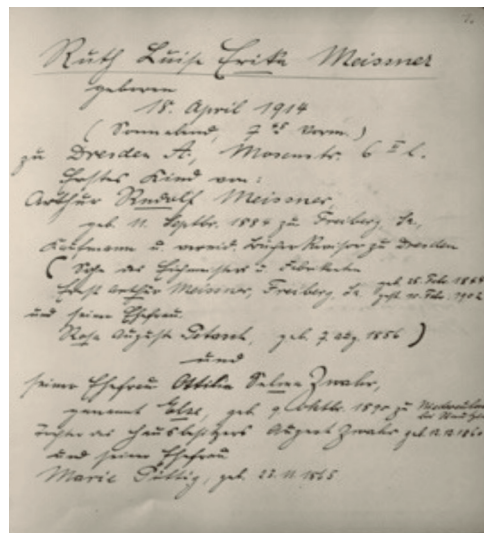 1.
Ruth Luise Erika Meissner
geboren
18. April 1914
(Sonnabend, 7 45 Vorm.)
zu Dresden A., Mosenstr. 6 II l.
Erstes Kind von:
Arthur Rudolf Meissner,
geb. 11. Septbr. 1884 zu Freiberg Sa.,
Kaufmann u. vereid. Bücher Revisor zu Dresden
(Sohn des u. Fabrikanten
Ernst Arthur Meissner, Freiberg, Sa. geb. 26. Febr.
gest. 10. Febr. 1902
und seiner Ehefrau
Rosa Auguste geb. 7. Aug. 1856)
und
seiner Ehefrau Ottilie Selma Zwahr,
genannt Else, geb. 9. Oktbr. 1890 zu
Tochter des Hausbesitzers August Zwahr geb. 12.12.
und seiner Ehefrau
Marie Püttig, geb. 22.11.1865.